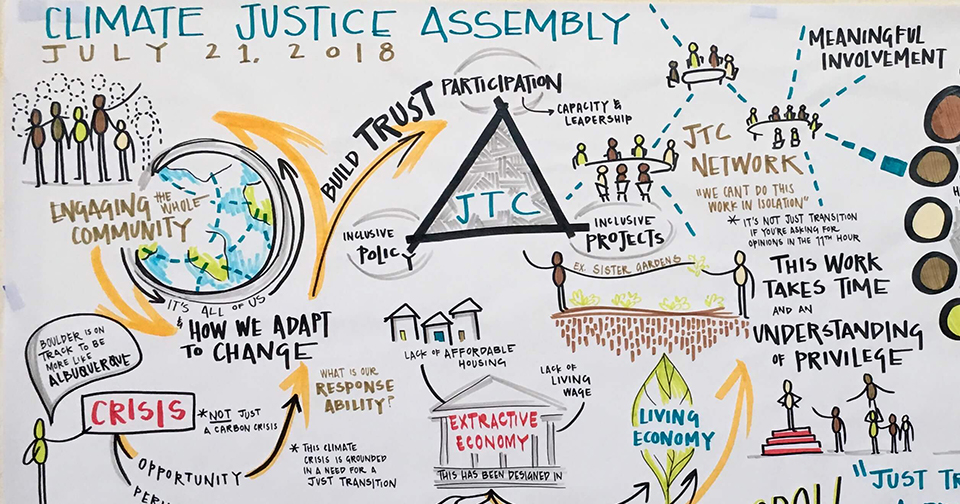 CLIMATE JUSTICE ASSEMBLY
JULY 21, 2018
ENGAGING THE WHOLE
COMMUNITY
IT'S ALL OF US
& HOW WE ADAPT
TO CHANGE
BUILD TRUST
PARTICIPATION
CAPACITY &
LEADERSHIP
JTC
INCLUSIVE
POLICY
INCLUSIVE
PROJECTS
JTC
NETWORK
"WE CAN'T DO THIS
WORK IN ISOLATION"
* IT'S NOT JUST TRANSITION
IF YOU'RE ASKING FOR
OPINIONS IN THE 11TH HOUR
MEANINGFUL
INVOLVEMENT
EX. SISTER GARDENS
THIS WORK
TAKES TIME
AND AN
UNDERSTANDING
OF PRIVILEGE
BOULDER IS ON
TRACK TO BE
MORE LIKE
ALBUQUERQUE
CRISIS
* NOT JUST
A CARBON CRISIS
OPPORTUNITY
WHAT IS OUR
RESPONSE
ABILITY?
* THIS CLIMATE
CRISIS IS GROUNDED
IN A NEED FOR A
JUST TRANSITION
LACK OF AFFORDABLE
HOUSING
LACK OF
LIVING
WAGE
EXTRACTIVE
ECONOMY
THIS HAS BEEN DESIGNED IN
LIVING
ECONOMY
"JUST TR